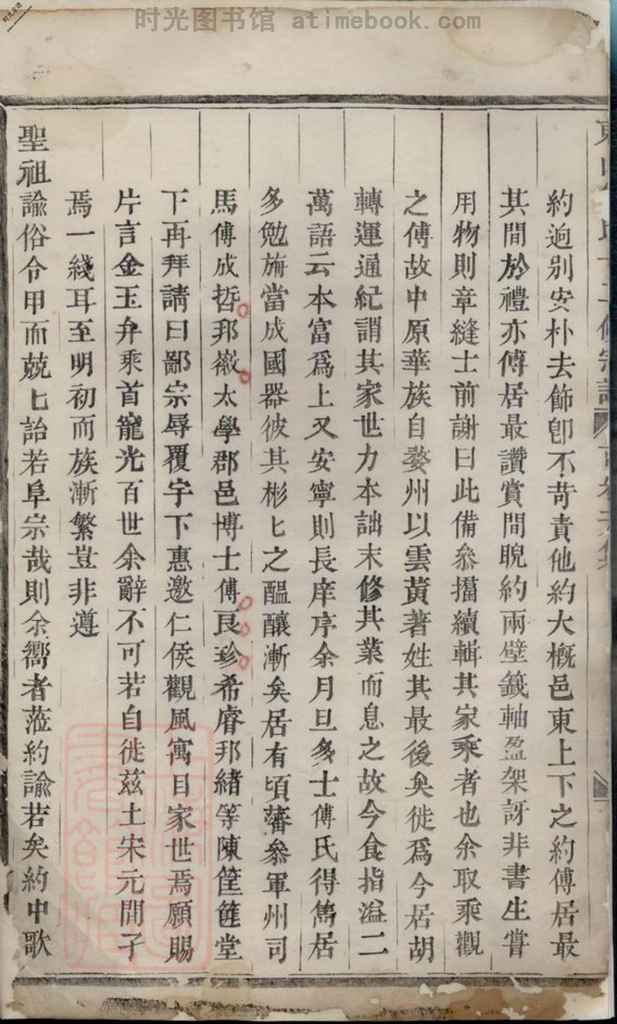 时光图书馆 atimebook.com
約逈别安朴去飾卽不苛責他約大概邑東上下之約傅居最
其間於禮亦傅居最讚賞間睨約兩壁籤軸盈架訝非書生嘗
用物則章縫士前謝曰此備叅攟續輯其家乘者也余取乘觀
之傅故中原華族自婺州以雲黃著姓其最後矣徙爲今居胡
轉運通紀謂其家世力本詘末修其業而息之故今食指溢二
萬語云本富爲上又安寧則長庠序余月旦多士傅氏得雋居
多勉旃當成國器彼其彬匕之醞釀漸矣居有頃藩叅軍州司
馬傅成哲邦徽太學郡邑博士傅良珍希睿邦緒等陳筐篚堂
下再拜請曰鄙宗辱覆宇下惠邀仁侯觀風寓目家世焉願賜
片言金玉弁乘首寵光百世余辭不可若自徙兹土宋元間子
焉一綫耳至明初而族漸繁豈非遵
聖祖諭俗令甲而兢匕詒若阜宗哉則余嚮者蒞約諭若矣約中歌